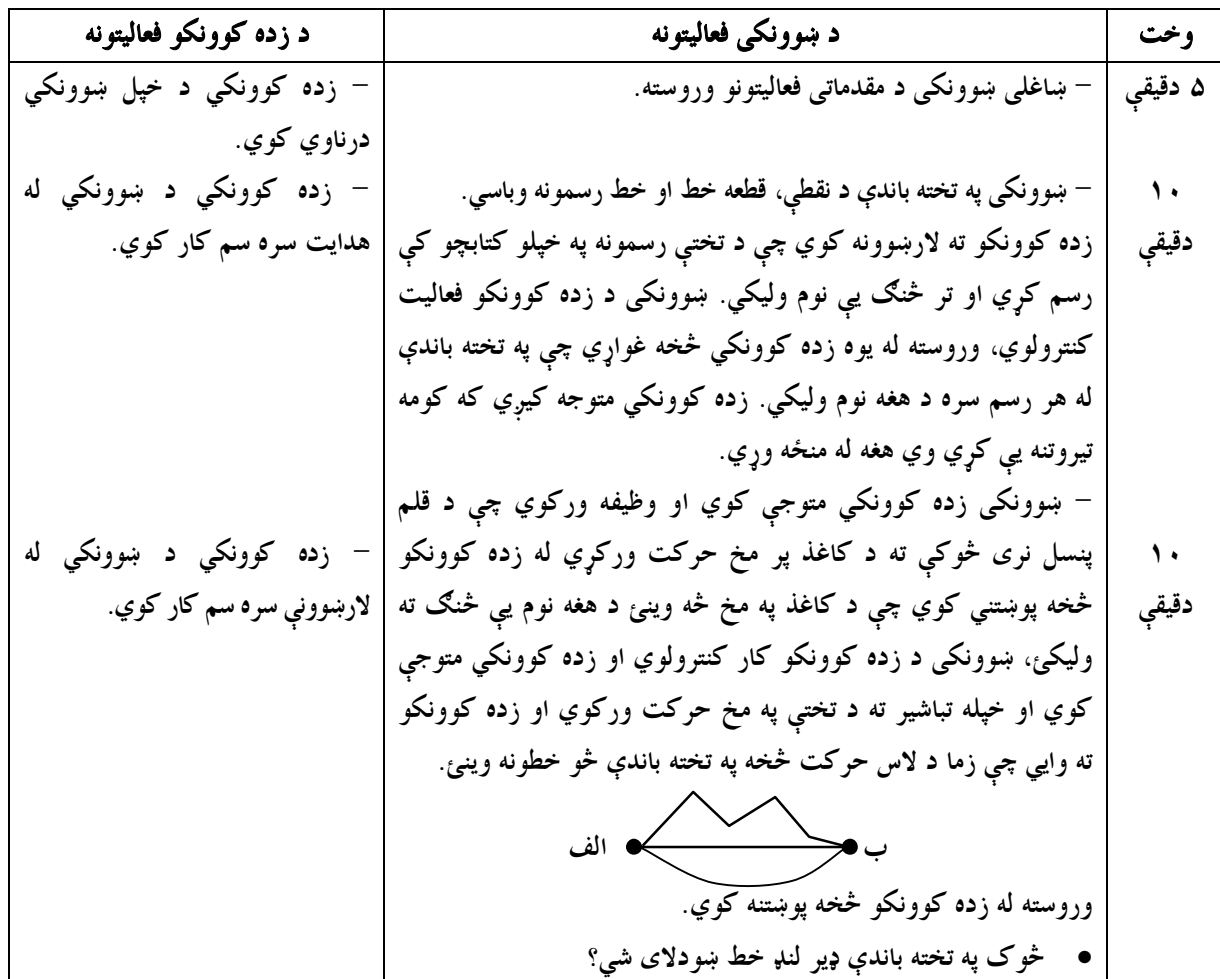 وخت
د ښوونکی فعالیتونه
د زده کوونکو فعالیتونه
۵ دقیقې
– ښاغلی ښوونکی د مقدماتی فعالیتونو وروسته.
– زده کوونکي د خپل ښوونکي
درناوي کوي.
۱۰
دقیقې
– ښوونکی په تخته باندې د نقطې، قطعه خط او خط رسمونه وباسي.
زده کوونکو ته لارښوونه کوي چې د تختې رسمونه په خپلو کتابچو کې
رسم کړي او تر څنګ یې نوم ولیکي. ښوونکی د زده کوونکو فعالیت
کنترولوي، وروسته له یوه زده کوونکي څخه غواړي چې په تخته باندې
له هر رسم سره د هغه نوم ولیکي. زده کوونکي متوجه کیږي که کومه
تیروتنه یې کړي وي هغه له منځه وړي.
– زده کوونکي د ښوونکي له
هدایت سره سم کار کوي.
۱۰
دقیقې
– ښوونکی زده کوونکي متوجې کوي او وظیفه ورکوي چې د قلم
پنسل نری څوکې ته د کاغذ پر مخ حرکت ورکړي له زده کوونکو
څخه پوښتنې کوي چې د کاغذ په مخ څه وینئ د هغه نوم یې څنګ ته
ولیکئ، ښوونکی د زده کوونکو کار کنترولوي او زده کوونکي متوجې
کوي او خپله تباشیر ته د تختې په مخ حرکت ورکوي او زده کوونکو
ته وایي چې زما د لاس حرکت څخه په تخته باندې څو خطونه وینئ.
ب
الف
وروسته له زده کوونکو څخه پوښتنه کوي.
● څوک په تخته باندې ډیر لنډ خط ښودلای شي؟
– زده کوونکي د ښوونکي له
لارښوونې سره سم کار کوي.